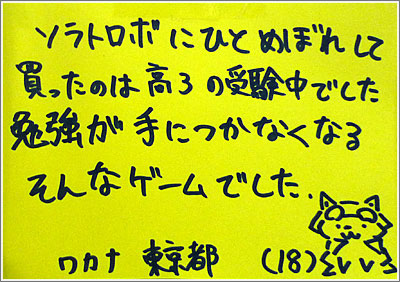 ソラトロボにひとめぼれして
買ったのは高3の受験中でした
勉強が手につかなくなる
そんなゲームでした.
ワカナ 東京都 (18)